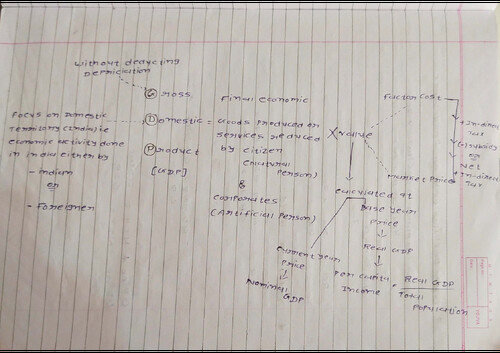 without deducting
Depriciation
Gross
Focus on Domestic
Territory (India) ie
economic activity done
in India either by
- Indian
or
- Foreigner
Domestic =
Product
[GDP]
Final economic
Goods produced or
services reduced
by citizen
(Natural
Person)
&
Corporates
(Artificial Person)
X value
Factor cost
+ In-direct
Tax
(-) subsidy
or
Net
+ In-direct
Tax
Market Price
calculated at
Base year
Price
Real GDP
Per capita
Income = Real GDP
Total
Population
current year
Price
Nominal
GDP